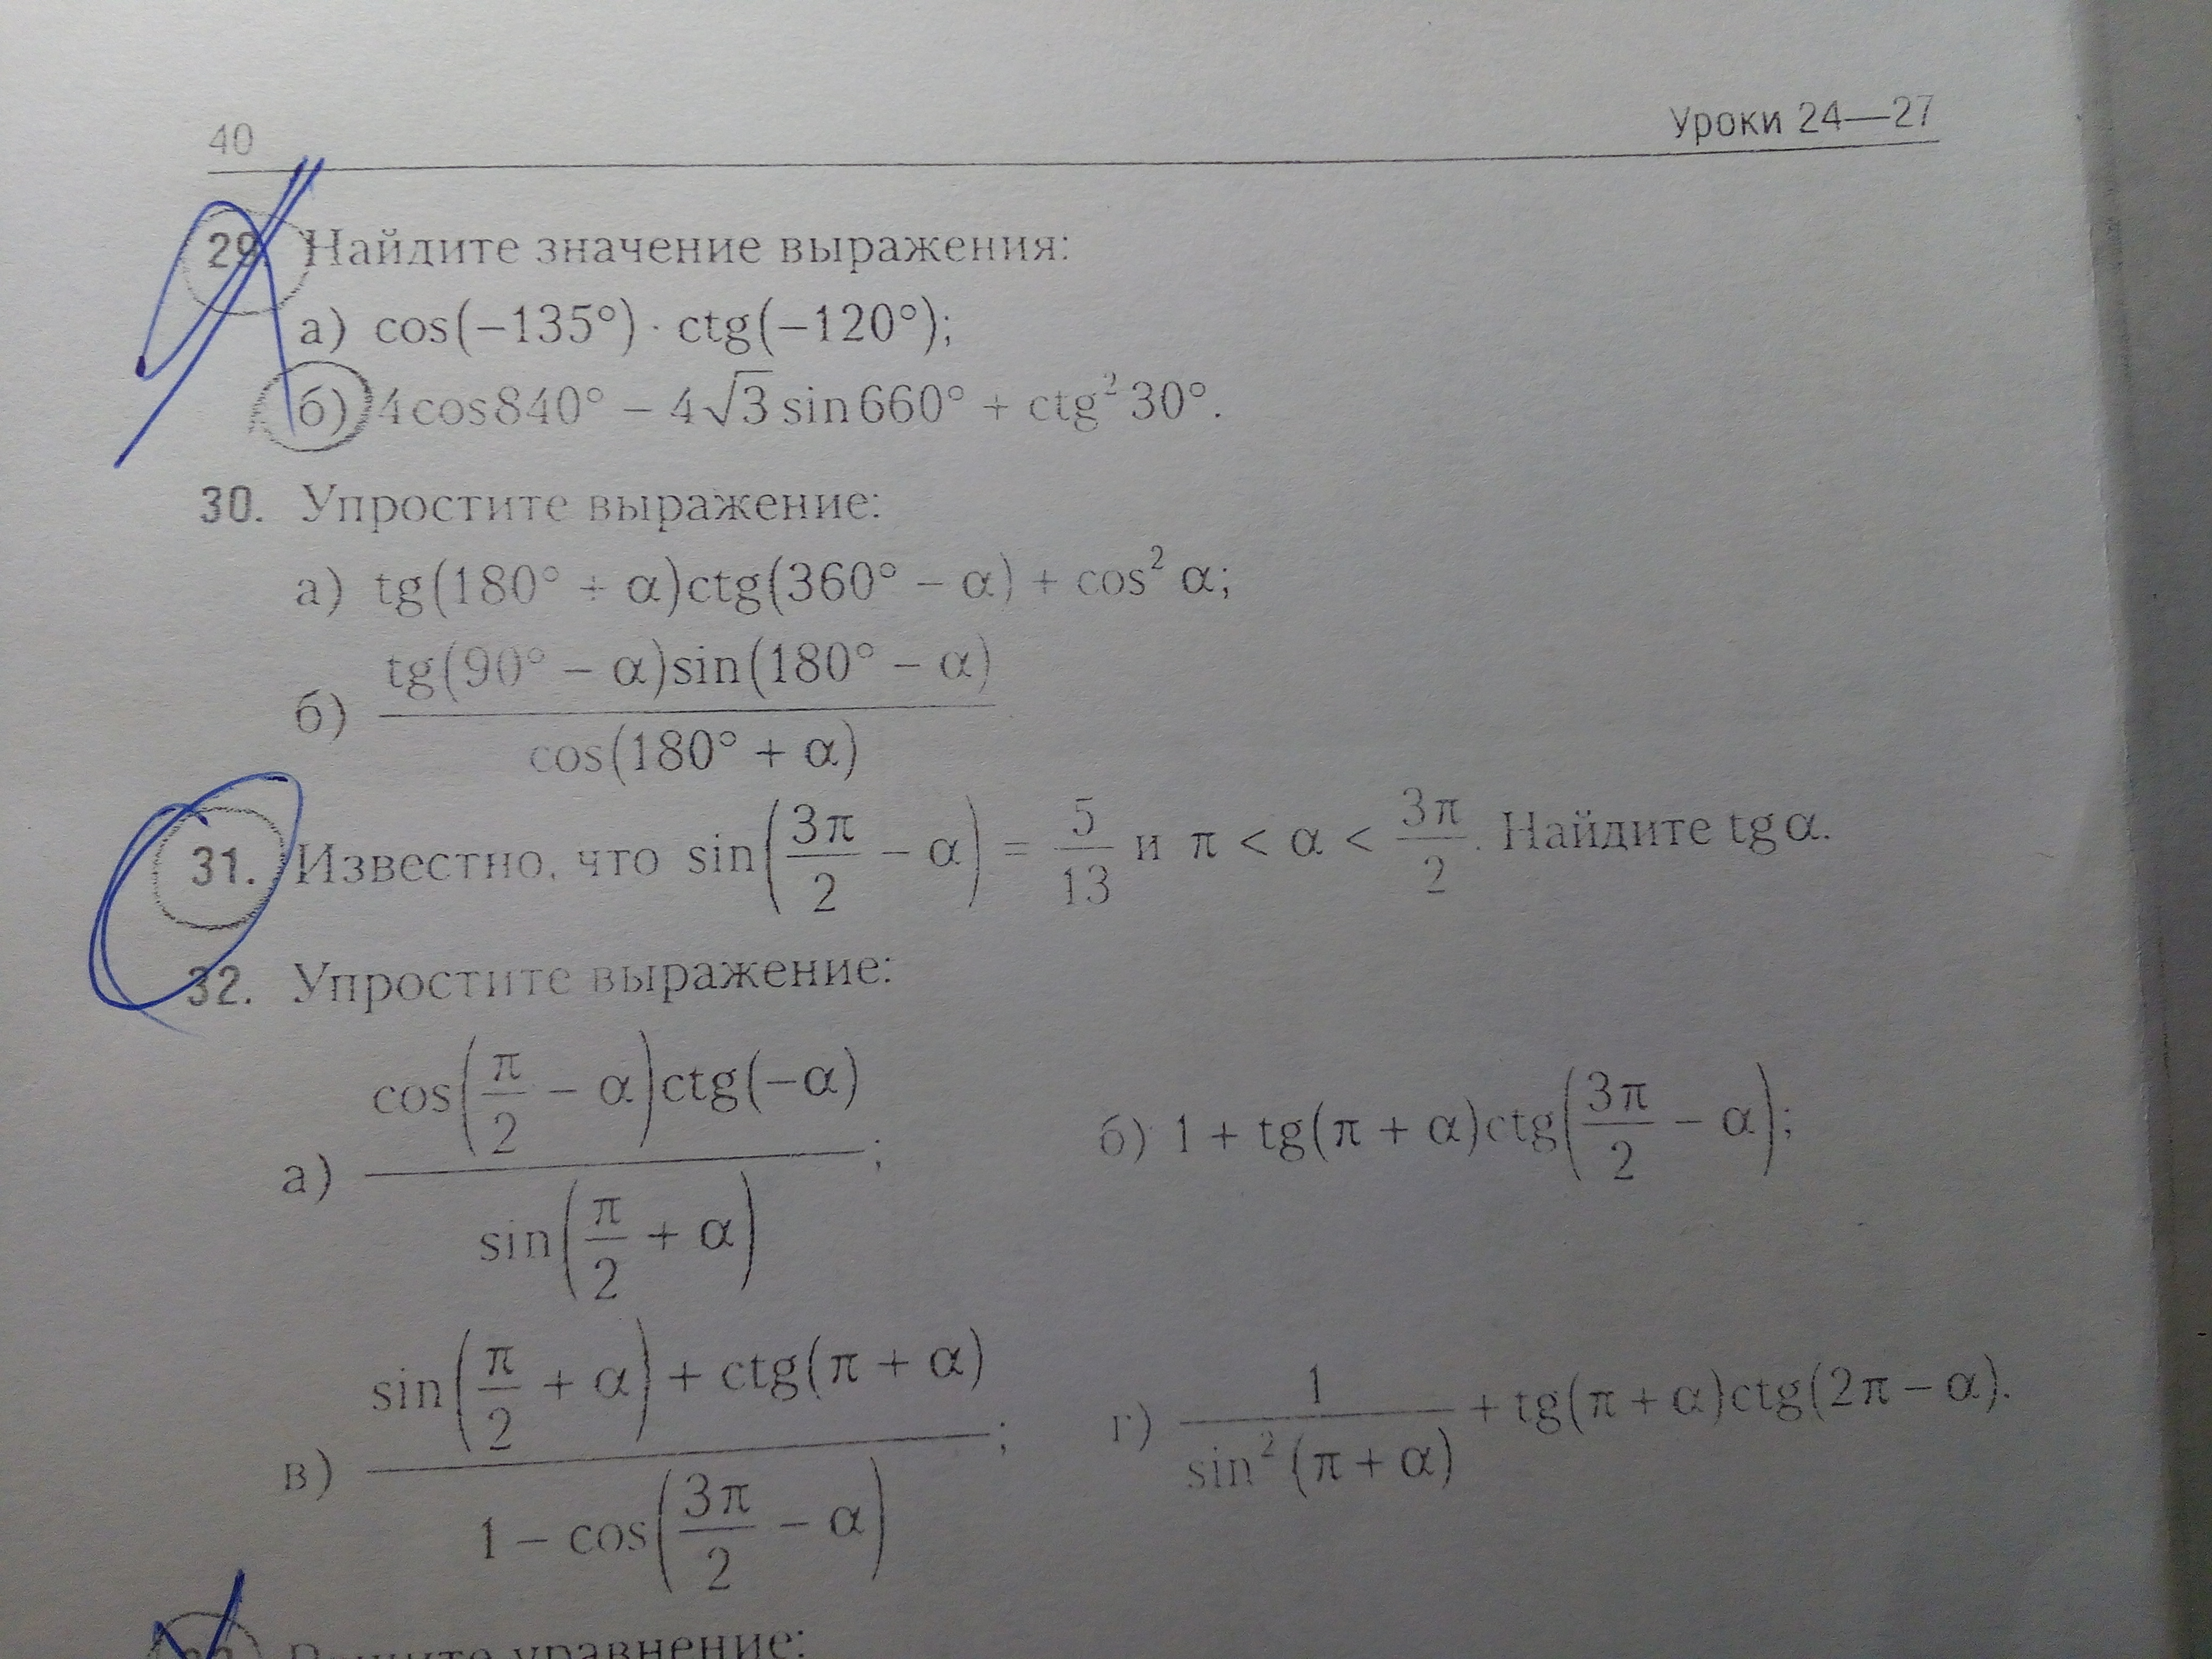 40
Уроки 24—27
29. Найдите значение выражения:
а) cos(−135°) · ctg(−120°);
б) 4cos840° − 4√3 sin660° + ctg² 30°.
30. Упростите выражение:
а) tg(180° + α)ctg(360° − α) + cos² α;
б) tg(90° − α)sin(180° − α) / cos(180° + α)
31. Известно, что sin(3π/2 − α) = 5/13 и π < α < 3π/2. Найдите tg α.
32. Упростите выражение:
а) cos(π/2 − α)ctg(−α) / sin(π/2 + α);
б) 1 + tg(π + α)ctg(3π/2 − α);
в) sin(π/2 + α) + ctg(π + α) / 1 − cos(3π/2 − α);
г) 1 / sin² (π + α) + tg(π + α)ctg(2π − α).
уравнение: